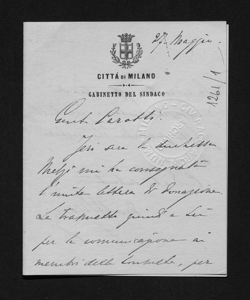 27. Maggio
CITTÀ DI MILANO
GABINETTO DEL SINDACO
1261/1
Gent. Parotti.
Jeri sera la duchessa
Melzi mi ha consegnato
l'unita lettera di donazione.
La trasmetto quindi a Lei
per la comunicazione ai
membri della Consulta, per